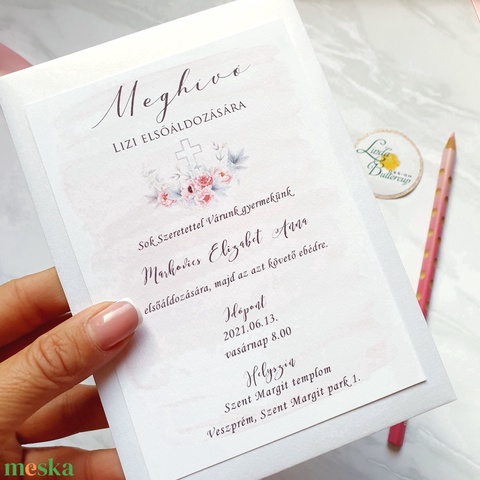 Meghívó
Lizi elsőáldozására
Sok Szeretettel Várunk gyermekünk
Markovics Elizabet Anna
elsőáldozására, majd az azt követő ebédre.
Időpont
2021.06.13.
vasárnap 8.00
Helyszín
Szent Margit templom
Veszprém, Szent Margit park 1.
Buttercup
meska